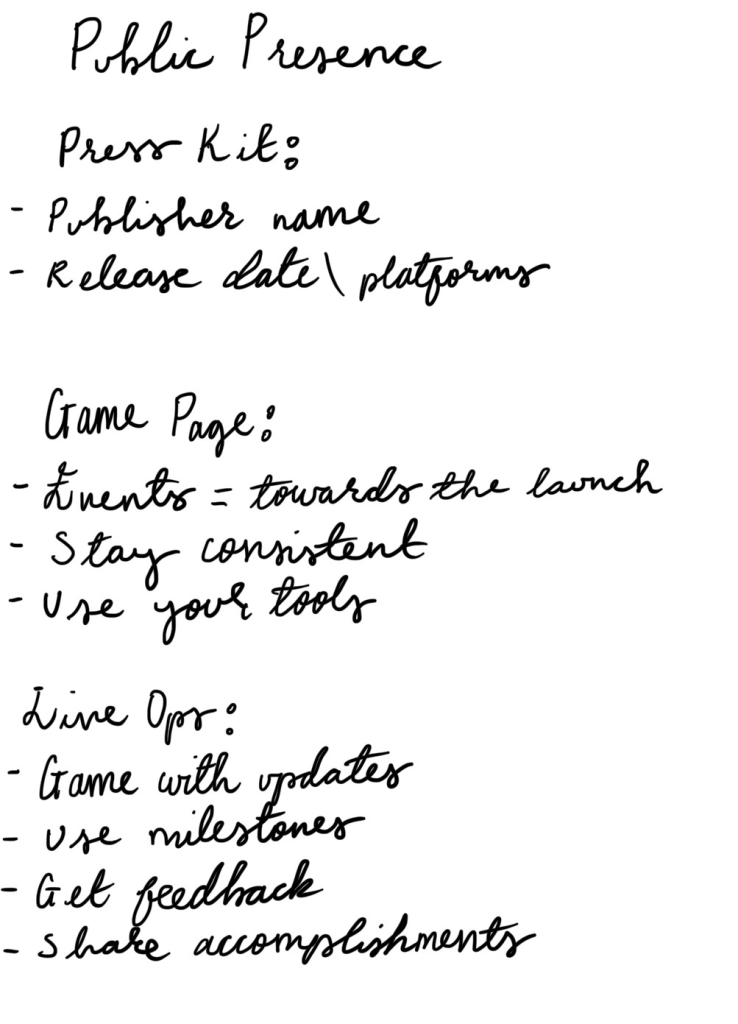 Public Presence
Press Kit:
- Publisher name
- Release date\ platforms
Game Page:
- Events = towards the launch
- Stay consistent
- Use your tools
Live Ops:
- Game with updates
- Use milestones
- Get feedback
- Share accomplishments